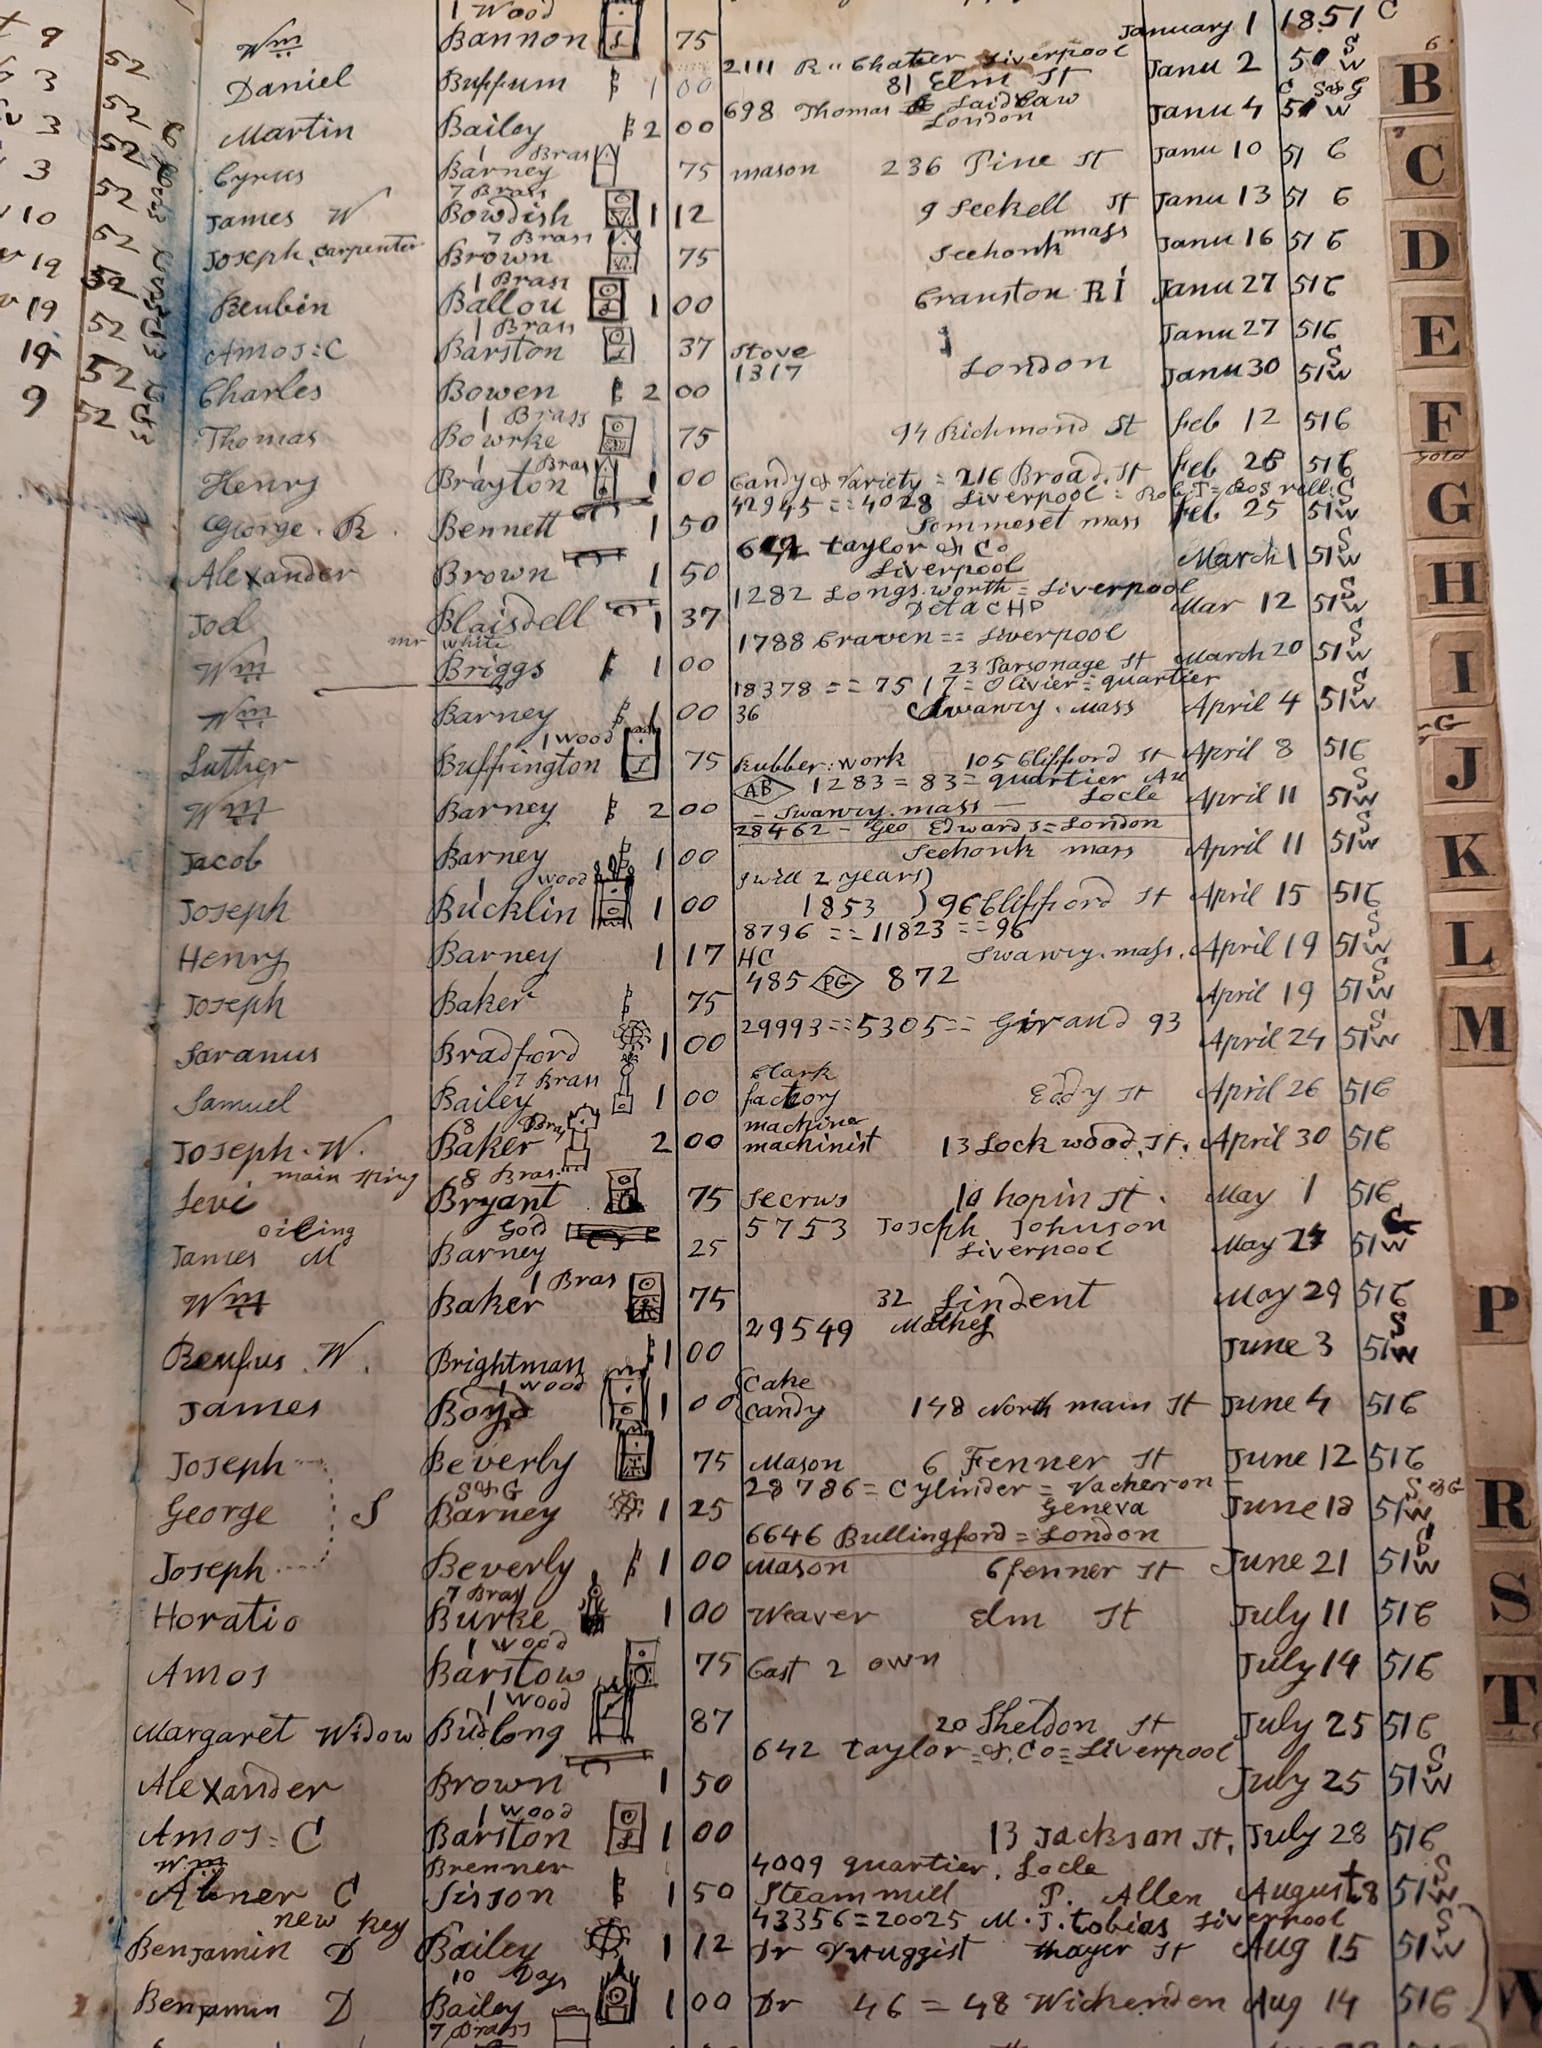 1 Wood
Wm Bannon 75 January 1 1851 C
2111 R. Chatier Liverpool S
Daniel Buffum 1 00 81 Elm St Janu 2 51 W
698 Thomas Laidlaw C S&G
Martin Bailey 2 00 London Janu 4 51 W
1 Bras
Cyrus Barney 75 mason 236 Pine St Janu 10 51 C
7 Brass
James W Bowdish 1 12 9 Seekell St Janu 13 51 C
7 Brass
Joseph carpenter Brown 75 Seehonk mass Janu 16 51 C
1 Brass
Reubin Ballou 1 00 Cranston RI Janu 27 51 C
1 Brass
Amos = C Barston 37 Stove Janu 27 51 C
1317 S
Charles Bowen 2 00 London Janu 30 51 W
1 Brass
Thomas Bowrke 75 94 Richmond St Feb 12 51 C
1 Bras
Henry Brayton 1 00 Candy & Variety = 216 Broad St Feb 25 51 C
42945 == 4028 Liverpool = S
George . R . Bennett 1 50 Sommeset mass Feb 25 51 W
taylor & Co S
Alexander Brown 1 50 Liverpool March 1 51 W
1282 Longsworth = Liverpool S
Joel Blaisdell 1 37 Detached Mar 12 51 W
mr white 1788 Craven == Liverpool S
Wm Briggs 1 00 23 Parsonage St March 20 51 W
18378 == 7517 = Olivier = quartier S
Wm Barney 1 00 36 Swanry . Mass April 4 51 W
1 wood
Luther Buffington 75 Rubber: work 105 Clifford St April 8 51 C
AB 1283 = 83 = quartier Au S
Wm Barney 2 00 - Swanry. mass — Locle April 11 51 W
28462 - Geo Edwards = London S
Jacob Barney 1 00 Seehonk mass April 11 51 W
1 wood (will 2 years)
Joseph Bucklin 1 00 1853 ) 96 Clifford St April 15 51 C
8796 == 11823 == 96 S
Henry Barney 1 17 HC Swanry. mass. April 19 51 W
485 PG 872 S
Joseph Baker 75 April 19 51 W
29993 == 5305 == Girand 93 S
Saranus Bradford 1 00 April 24 51 W
7 Brass Clark
Samuel Bailey 1 00 factory Eddy St April 26 51 C
8 Bras machine
Joseph . W. Baker 2 00 machinist 13 Lockwood. St. April 30 51 C
main spring 8 Bras
Levi Bryant 75 Secrus 10 hopin St . May 1 51 C
oiling Gold 5753 Joseph Johnson G
James M Barney 25 Liverpool May 24 51 W
1 Bras
Wm Baker 75 32 Lindent May 29 51 C
29549 Mathey S
Reufus . W . Brightman 1 00 June 3 51 W
1 wood Cake
James Boyd 1 00 Candy 148 North main St June 4 51 C
Joseph Beverly 75 Mason 6 Fenner St June 12 51 C
S & G 28786 = Cylinder = Vacheron S & G
George S Barney 1 25 Geneva June 18 51 W
6646 Bullingford = London S
Joseph Beverly 1 00 Mason 6 fenner St June 21 51 W
7 Bras
Horatio Burke 1 00 Weaver Elm St July 11 51 C
1 wood
Amos Barstow 75 Cast 2 own July 14 51 C
1 Wood
Margaret Widow Budlong 87 20 Sheldon St July 25 51 C
642 taylor = & Co = Liverpool S
Alexander Brown 1 50 July 25 51 W
1 wood
Amos = C Barston 1 00 13 Jackson St. July 28 51 C
Wm Brenner 4009 quartier. Locle S
Abner C Sisson 1 50 Steammill P. Allen August 8 51 W
new key 43356 = 20025 M. J. tobias Liverpool S
Benjamin D Bailey 1 12 Dr Druggist thayer St Aug 15 51 W
10 Days
Benjamin D Bailey 1 00 Dr 46 = 48 Wickenden Aug 14 51 C
7 Brass
9 52
3 52
3 52
3 52
10 52
19 52
19 52
19 52
9 52
6
B
C
D
E
F
Gold
G
H
I
G
J
K
L
M
P
R
S
T
W